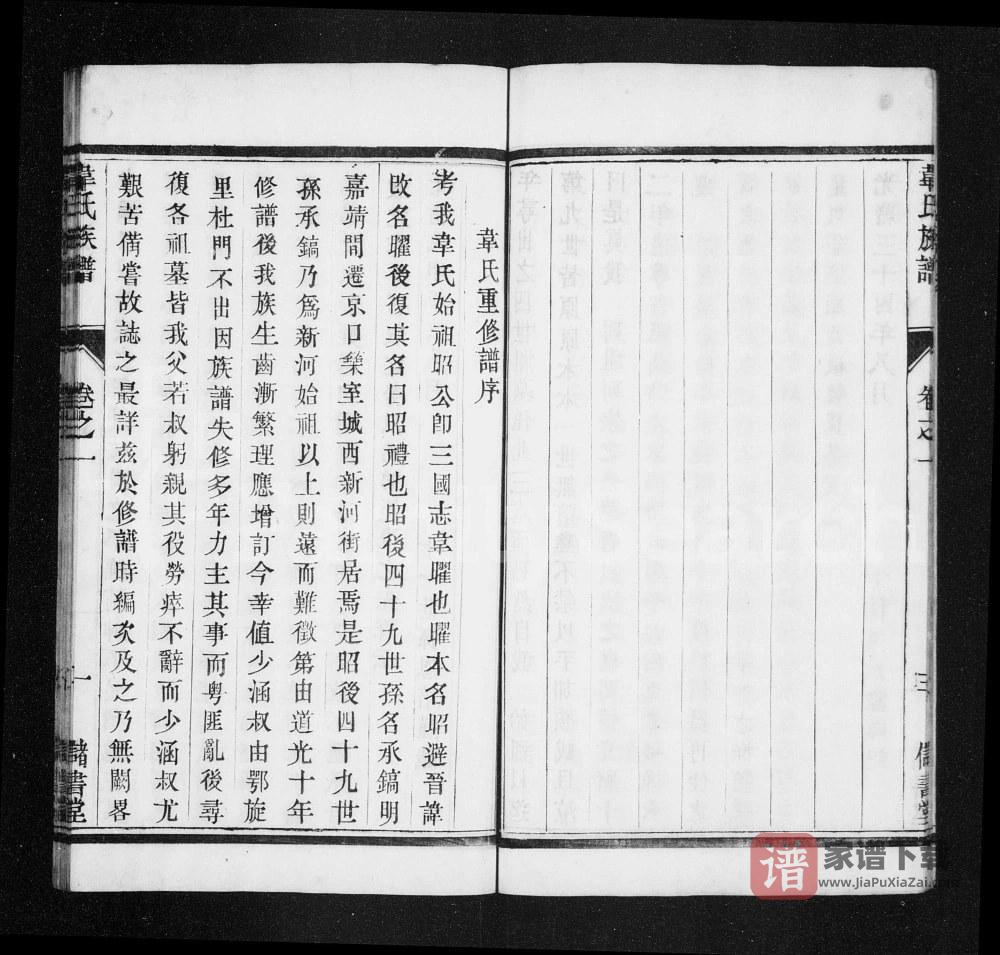 韋氏族譜
卷之一
三
儲書堂
韋氏重修譜序
考我韋氏始祖昭公卽三國志韋曜也曜本名昭避晉諱
改名曜後復其名曰昭禮也昭後四十九世孫名承鎬明
嘉靖間遷京口樂至城西新河街居焉是昭後四十九世
孫承鎬乃爲新河始祖以上則遠而難徵第由道光十年
修譜後我族生齒漸繁理應增訂今幸值少涵叔由鄂旋
里杜門不出因族譜失修多年力主其事而粤匪亂後尋
復各祖墓皆我父若叔躬親其役勞瘁不辭而少涵叔尤
艱苦備嘗故誌之最詳茲於修譜時編次及之乃無闕畧
韋氏族譜
卷之一
一
儲書堂
谱
家谱下载
www.JiaPuXiaZai.com